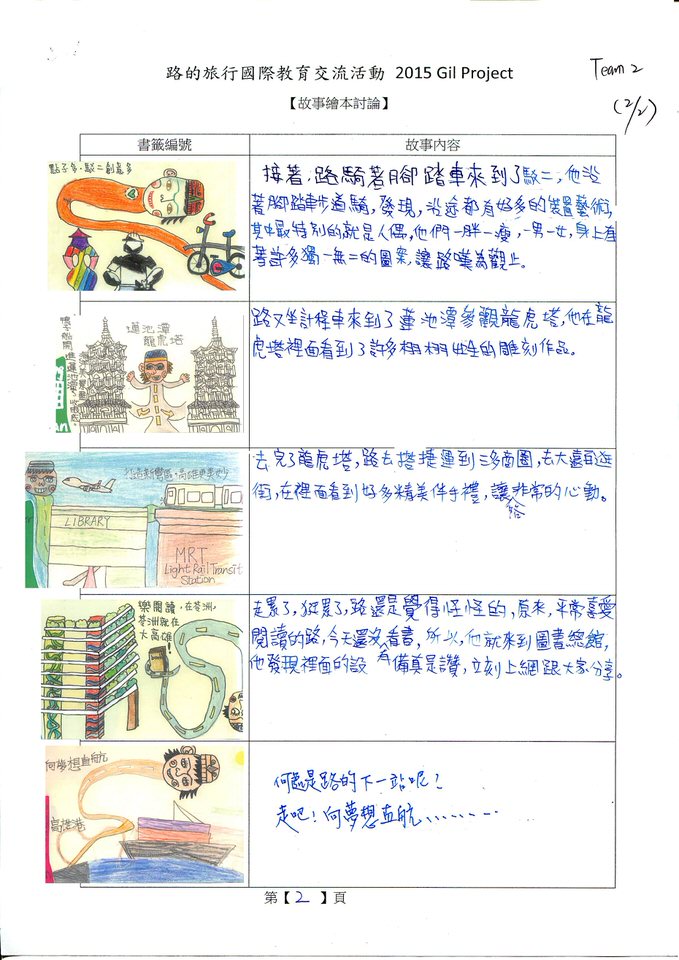 路的旅行國際教育交流活動 2015 Gil Project
Team 2
(2/2)
【故事繪本討論】
書籤編號
故事內容
點子多・駁二創意多
接著,路騎著腳踏車來到了駁二,他沿
著腳踏車步道騎,發現,沿途都有好多的裝置藝術,
其中最特別的就是人偶,他們一胖一瘦,一男一女,身上有
著許多獨一無二的圖案,讓路嘆為觀止。
蓮池潭
龍虎塔
路又坐計程車來到了蓮池潭參觀龍虎塔,他在龍
虎塔裡面看到了許多栩栩如生的雕刻作品。
LIBRARY
MRT
Light Rail Transit
Station
去完了龍虎塔,路去搭捷運到三多商圈,去大遠百逛
街,在裡面看到好多精美伴手禮,讓非常的心動。
路
樂閱讀,在苓洲,
苓洲就在
大高雄!
走累了,逛累了,路還是覺得怪怪的,原來,平常喜愛
閱讀的路,今天還沒看書,所以,他就來到圖書總館,
他發現裡面的設備真是讚,立刻上網跟大家分享。
向夢想直航
高雄港
何處是路的下一站呢?
走吧!向夢想直航.......
第【2】頁